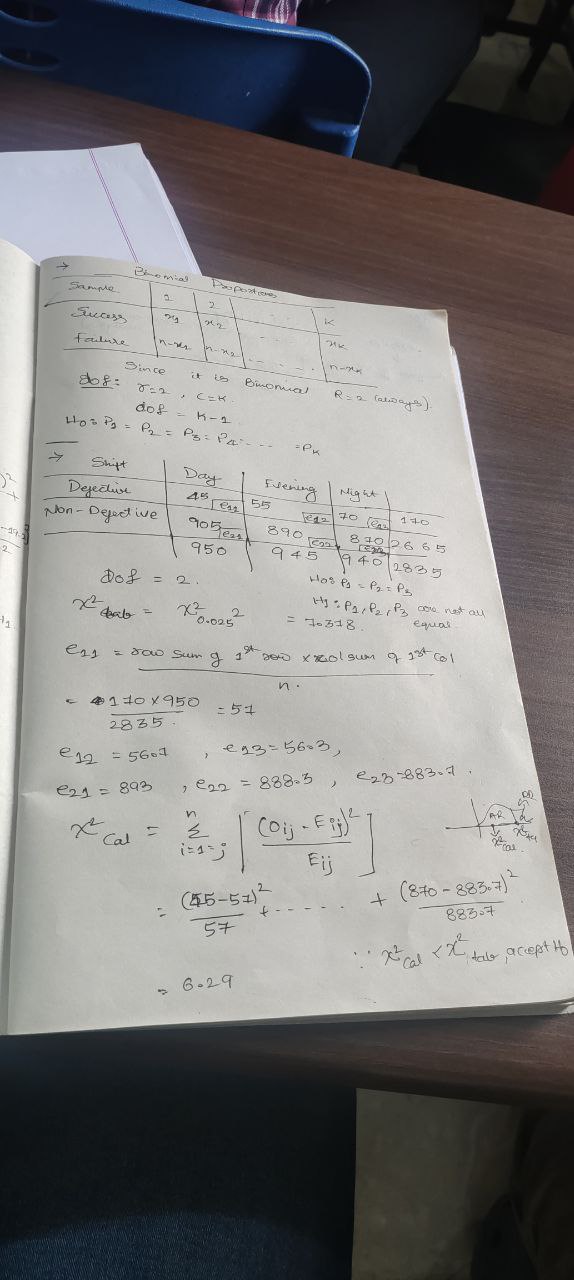 → Binomial Proportions
Sample 1 2 . . . K
Success x1 x2 xK
Failure n-x1 n-x2 . . . . . n-xK
Since it is Binomial R=2 (always).
dof: r=2, c=K.
dof = K-1
H0: P1 = P2 = P3 = P4 = ---- = PK
→ Shift Day Evening Night
Defective 45 e11 55 e12 70 e12 170
Non-Defective 905 e21 890 e22 870 e23 2665
950 945 940 2835
Dof = 2. H0: P1 = P2 = P3
H1: P1, P2, P3 are not all equal.
χ²tab = χ²0.025 2 = 7.378.
e11 = row sum of 1st row × col sum of 1st col
n.
= 170 × 950 = 57
2835.
e12 = 56.7 , e13 = 56.3,
e21 = 893 , e22 = 888.3 , e23 = 883.7.
χ²Cal = n Σ i=1=j [(Oij - Eij)²
Eij]
AR α χ²cal
= (45-57)² + - - - - - . + (870-883.7)²
57 883.7
∵ χ²Cal < χ²tab, accept H0
= 6.29
-19.2
2
H1.